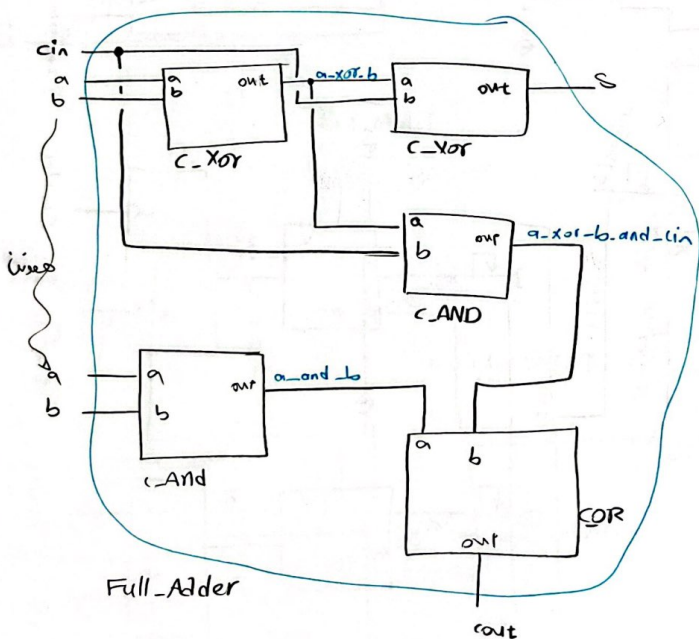 cin
a
b
a
b
out
C_Xor
a_xor_b
a
b
out
C_Xor
S
a
b
out
C_AND
a_xor_b_and_cin
a
b
a
b
out
C_And
a_and_b
a
b
out
COR
cout
Full_Adder